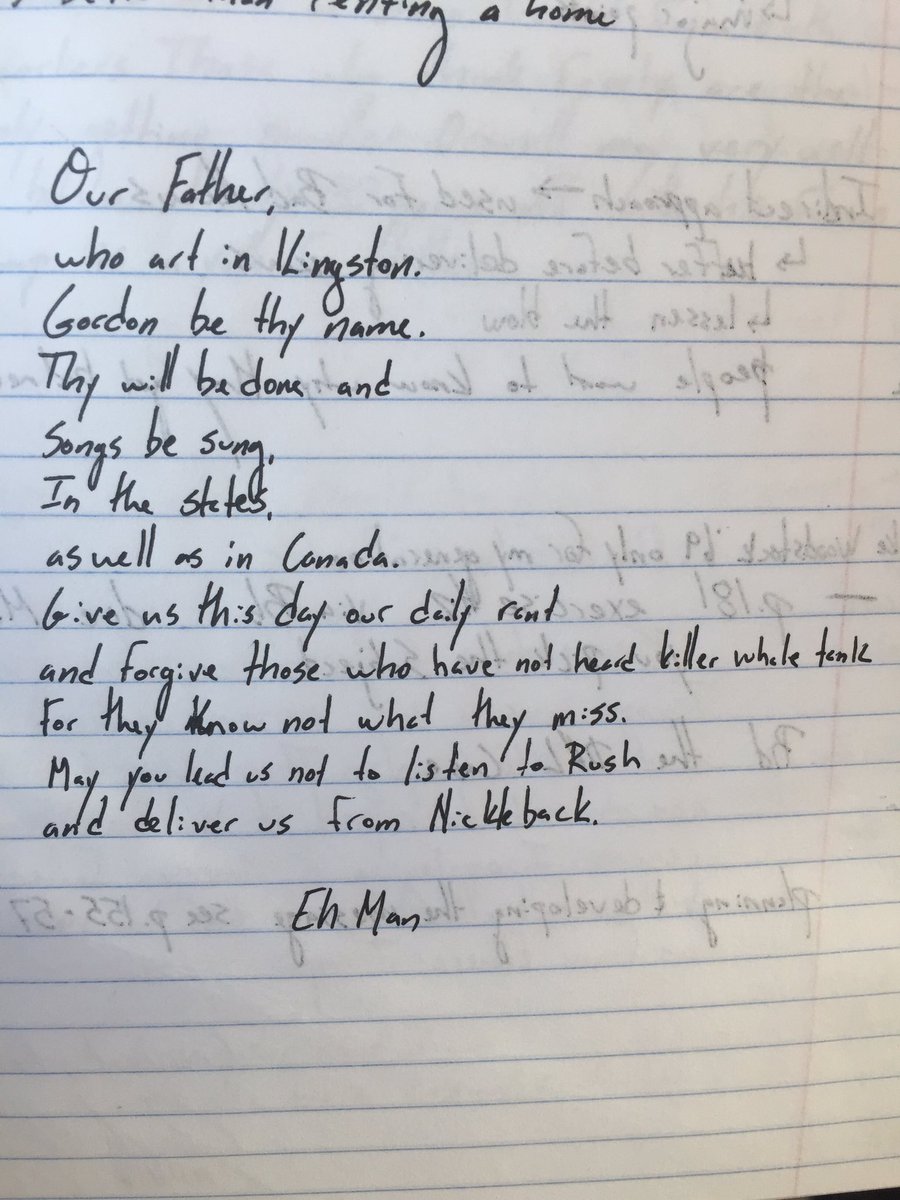 renting a home
Our Father,
who art in Kingston.
Gordon be thy name.
Thy will be done and
Songs be sung,
In the states,
as well as in Canada.
Give us this day our daily rant
and forgive those who have not heard killer whale tank
For they know not what they miss.
May you lead us not to listen to Rush
and deliver us from Nickleback.
Eh Man